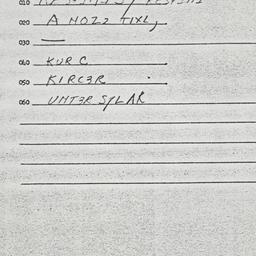 020 A NOZZ TIXL,
030 —
040 KUR C
050 KIRC3R
060 UNT3R SYLAR